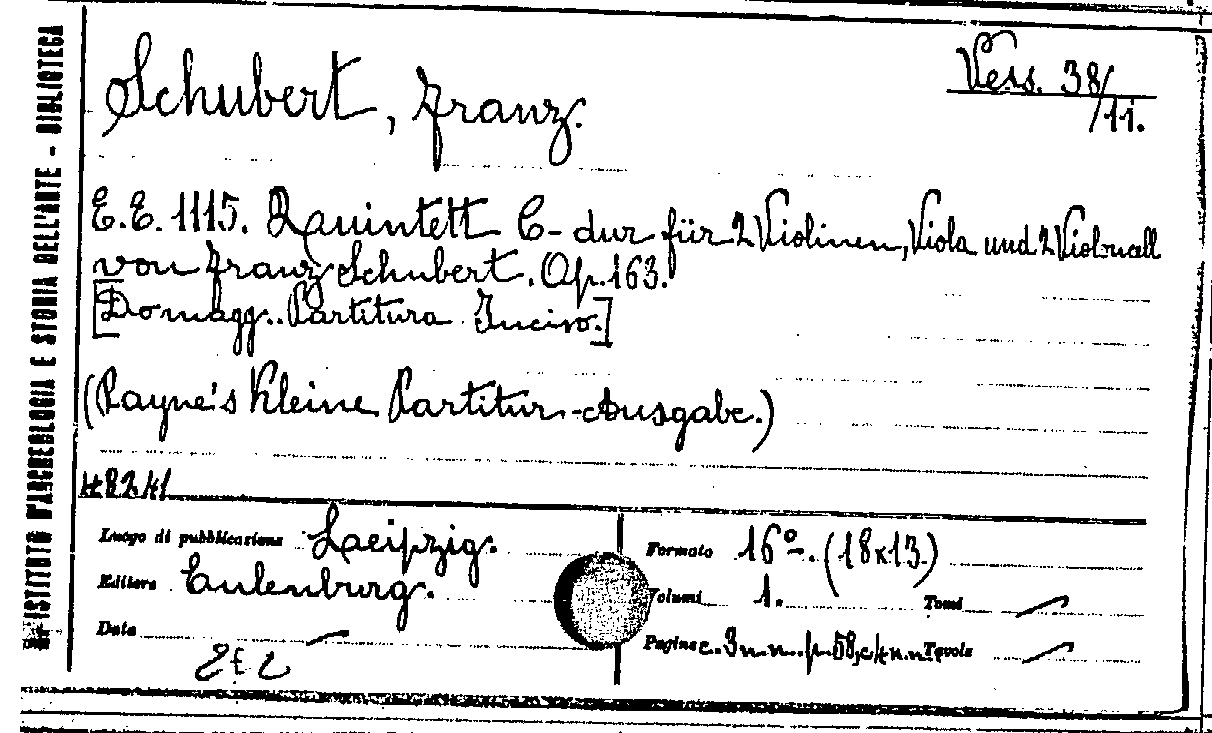 R. ISTITUTO D'ARCHEOLOGIA E STORIA DELL'ARTE - BIBLIOTECA
Schubert, Franz.
Vess. 38/
/11.
E.E. 1115. Quintett C-dur für 2 Violinen, Viola und 2 Violoncell
von Franz Schubert. Op. 163.
[Domagg.. Partitura Inciso.]
(Payne's Kleine Partitur-Ausgabe.)
48241
Luogo di pubblicazione Leipzig.
Editore Eulenburg.
Data —
Formato 16º-. (18x13.)
Volumi 1. Tomi —
Pagine c. 3 n.n. p. 58, c. 4 n.n. Tavole —